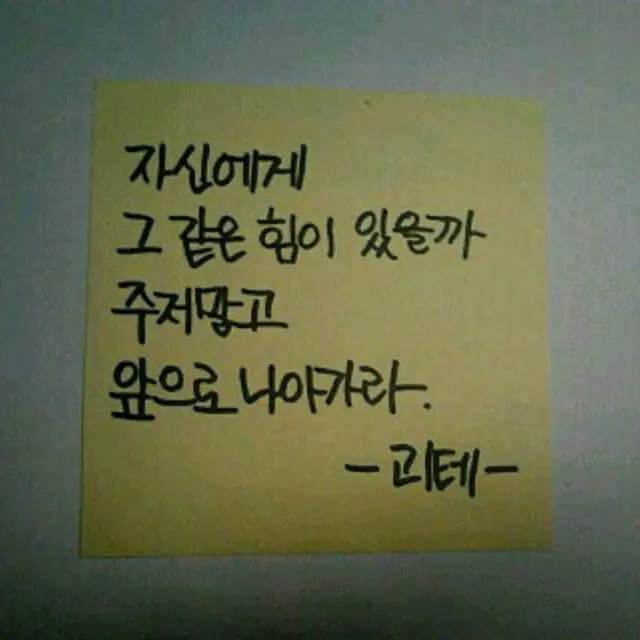 자신에게
그 같은 힘이 있을까
주저말고
앞으로 나아가라.
- 괴테 -